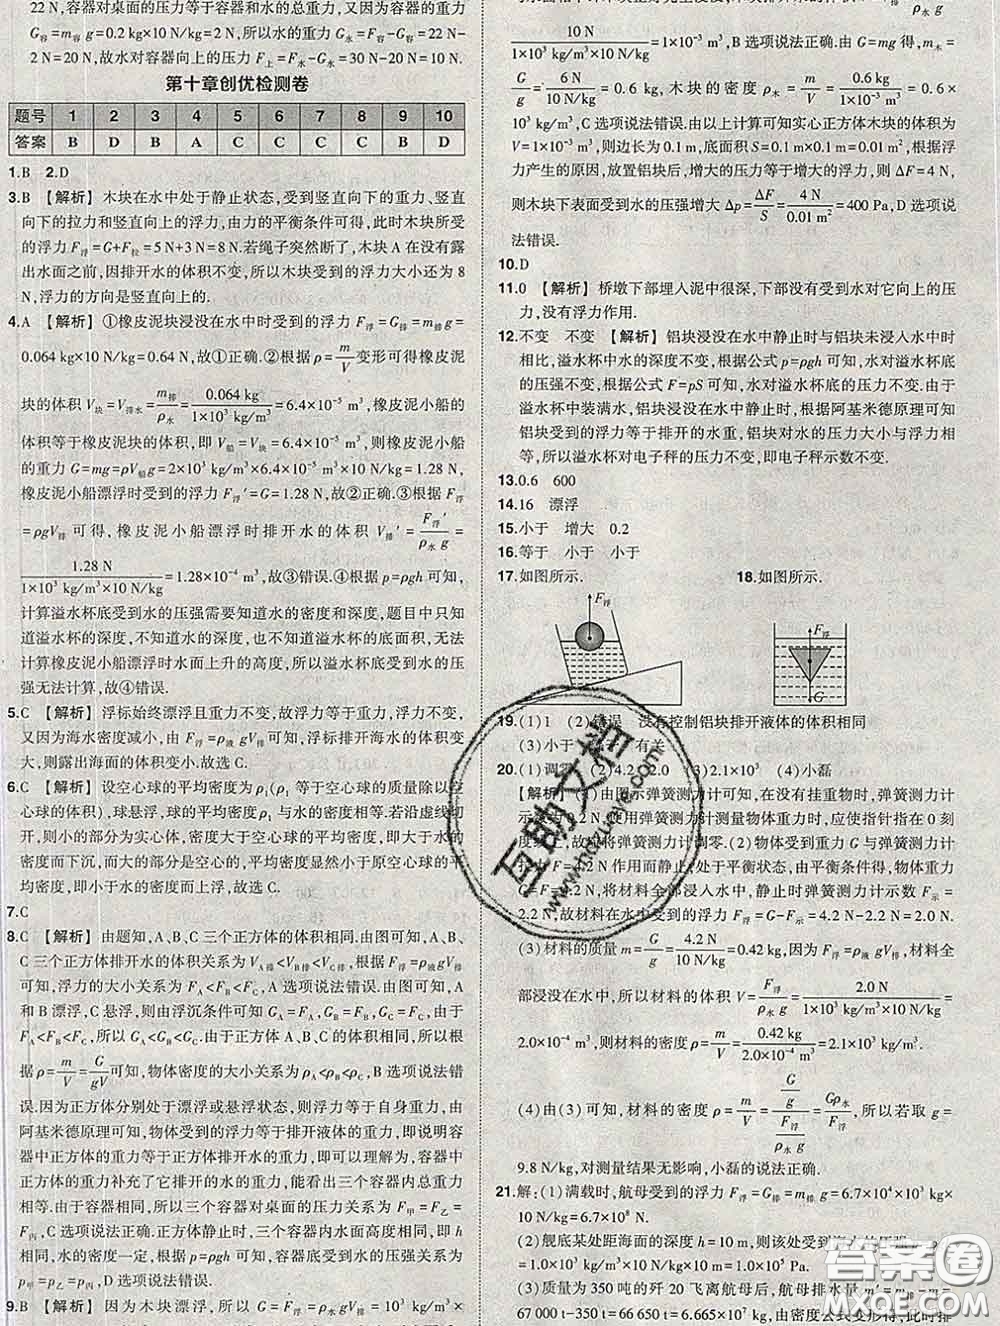 22 N,容器对桌面的压力等于容器和水的总重力,又因为容器的重力
G容=m容g=0.2 kg×10 N/kg=2 N,所以水的重力 G水=G总-G容=22 N-
2 N=20 N,故水对容器向上的压力 F上=F水-G水=30 N-20 N=10 N.
第十章创优检测卷
题号 1 2 3 4 5 6 7 8 9 10
答案 B D B A C C C C B D
1.B 2.D
3.B 【解析】 木块在水中处于静止状态,受到竖直向下的重力、竖直
向下的拉力和竖直向上的浮力,由力的平衡条件可得,此时木块所受
的浮力 F浮=G+F拉=5 N+3 N=8 N.若绳子突然断了,木块 A 在没有露
出水面之前,因排开水的体积不变,所以木块受到的浮力大小还为 8
N,浮力的方向是竖直向上的.
4.A 【解析】 ①橡皮泥块浸没在水中时受到的浮力 F浮=G排=m排g=
0.064 kg×10 N/kg=0.64 N,故①正确;②根据 ρ=m/V 变形可得橡皮泥
块的体积 V块=V排水=m排/ρ水=0.064 kg/(1×10³ kg/m³)=6.4×10⁻⁵ m³,橡皮泥小船的
体积等于橡皮泥块的体积,即 V船=V块=6.4×10⁻⁵ m³,橡皮泥小船
的重力 G=mg=ρV船g=2×10³ kg/m³×6.4×10⁻⁵ m³×10 N/kg=1.28 N,
橡皮泥小船漂浮时受到的浮力 F浮′=G=1.28 N,故②正确;③根据 F浮
=ρgV排可得,橡皮泥小船漂浮时排开水的体积 V排′=F浮′/(ρ水 g)=
1.28 N/(1×10³ kg/m³×10 N/kg)=1.28×10⁻⁴ m³,故③错误;④根据 p=ρgh 可知,
计算溢水杯底受到水的压强需要知道水的密度和深度,题目中只知
道溢水杯的高度,不知道水的深度,也不知道溢水杯的底面积,无法
计算橡皮泥小船漂浮时水面上升的高度,所以溢水杯底受到水的压
强无法计算,故④错误.
5.C 【解析】 浮标始终漂浮且重力不变,故浮力等于重力,浮力不变,
又因为海水密度减小,由 F浮=ρ液gV排可知,浮标排开海水的体积变
大,则露出海面的体积变小.故选 C.
6.C 【解析】 设空心球的平均密度为 ρ₁(ρ₁ 等于空心球的质量除以空
心球的体积),球悬浮,球的平均密度 ρ₁ 与水的密度相等.若沿虚线切
开,较小的部分为实心体,密度大于空心球的平均密度,即大于水的
密度而下沉,而大的部分是空心的,平均密度显然小于原空心球的平
均密度,即小于水的密度而上浮,故选 C.
7.C
8.C 【解析】 由题知,A、B、C 三个正方体的体积相同.由图可知,A、B、
C 三个正方体排开水的体积关系为 V A排<V B排<V C排,根据 F浮=ρ液gV排
可知,浮力的大小关系为 F A<F B<F C,A 选项说法错误.由图可知,A
和 B 漂浮,C 悬浮,则由浮沉条件可知 G A=F A,G B=F B,G C=F C,由于
F A<F B<F C,所以 G A<G B<G C.由于正方体 A、B、C 的体积相同,所以根
据 ρ=m/V=G/gV可知,物体密度的大小关系为 ρA<ρB<ρC,B 选项说法错
误.因为正方体分别处于漂浮或悬浮状态,则浮力等于自身重力,由
阿基米德原理可知,物体受到的浮力等于排开液体的重力,即说明容
器中正方体的重力等于正方体排开水的重力,即可以理解为,容器中
正方体的重力补充了它排开水的重力,能看出三个容器内总重力相
等.由于容器相同,所以三个容器对桌面的压力关系为 F甲=F乙=
F丙,C 选项说法正确.正方体静止时,三个容器内水面高度相同,即 h
相同,水的密度一定,根据 p=ρgh 可知,容器底受到水的压强关系为
p甲=p乙=p丙,D 选项说法错误.
9.B 【解析】 因为木块漂浮,所以 G=F浮=ρ水gV排=10³ kg/m³×
10 N/(1×10³ kg/m³×10 N/kg)=1×10⁻³ m³,B 选项说法正确.由 G=mg 得,m木=
G/g=6 N/(10 N/kg)=0.6 kg,木块的密度 ρ木=m/V=0.6 kg/(1×10⁻³ m³)=0.6×
10³ kg/m³,C 选项说法错误.由以上计算可知实心正方体木块的体积为
V=1×10⁻³ m³,则边长为 0.1 m,底面积 S=0.1 m×0.1 m=0.01 m².根据浮
力产生的原因,放置铝块后,增大的压力等于增大的浮力,所以 ΔF=4 N,
则木块下表面受到水的压强增大 Δp=ΔF/S=4 N/0.01 m²=400 Pa,D 选项说
法错误.
10.D
11.0 【解析】 桥墩下部埋入泥中很深,下部没有受到水对它向上的压
力,没有浮力作用.
12.不变 不变 【解析】 铝块浸没在水中静止时与铝块未浸入水中时
相比,溢水杯中水的深度不变,根据公式 p=ρgh 可知,水对溢水杯底
的压强不变,根据公式 F=pS 可知,水对溢水杯底的压力不变.由于
溢水杯中装满水,铝块浸没在水中静止时,根据阿基米德原理可知
铝块受到的浮力等于排开的水重,铝块对水的压力大小与浮力相
等,所以溢水杯对电子秤的压力不变,即电子秤示数不变.
13.0.6 600
14.16 漂浮
15.小于 增大 0.2
16.等于 小于 小于
17.如图所示. 18.如图所示.
F浮
F浮
G
19.(1)1 (2)错误 没有控制铝块排开液体的体积相同
(3)小于 有关
20.(1)调零 (2)4.2 2.0 (3)2.1×10³ (4)小磊
【解析】 (1)由图示弹簧测力计可知,在没有挂重物时,弹簧测力计
示数为0.2 N,使用弹簧测力计测量物体重力时,应使指针指在 0 刻
度线上,故应将弹簧测力计调零.(2)由于物体受重力 G 与弹簧测力计
拉力 F=4.2 N 作用而静止,处于平衡状态,由平衡条件得,物体重力
G=F=4.2 N,将材料全部浸入水中,静止时弹簧测力计示数 F示=
2.2 N,故材料在水中受到的浮力 F浮=G-F示=4.2 N-2.2 N=2.0 N.
(3)材料的质量 m=G/g=4.2 N/(10 N/kg)=0.42 kg,因为 F浮=ρ液 gV排,材料全
部浸没在水中,所以材料的体积 V=F浮/(ρ水 g)=2.0 N/(1×10³ kg/m³×10 N/kg)=
2.0×10⁻⁴ m³,则材料的密度 ρ=m/V=0.42 kg/(2.0×10⁻⁴ m³)=2.1×10³ kg/m³.
(4)由(3)可知,材料的密度 ρ=m/V=(G/g)/(F浮/(ρ水 g))=Gρ水/F浮,所以若取 g=
9.8 N/kg,对测量结果无影响,小磊的说法正确.
21.解:(1)满载时,航母受到的浮力 F浮=G排=m排g=6.7×10⁷ kg×
10 N/kg=6.7×10⁸ N.
(2)舰底某处距海面的深度 h=10 m,则该处受到海水的压强
(3)质量为 350 吨的歼 20 飞离航母后,航母排水量 m′=m排-m=
67 000 t-350 t=66 650 t=6.665×10⁷ kg,由密度公式变形得,此时排
互助文档
www.hzuwe.com
答案圈
MXQE.COM